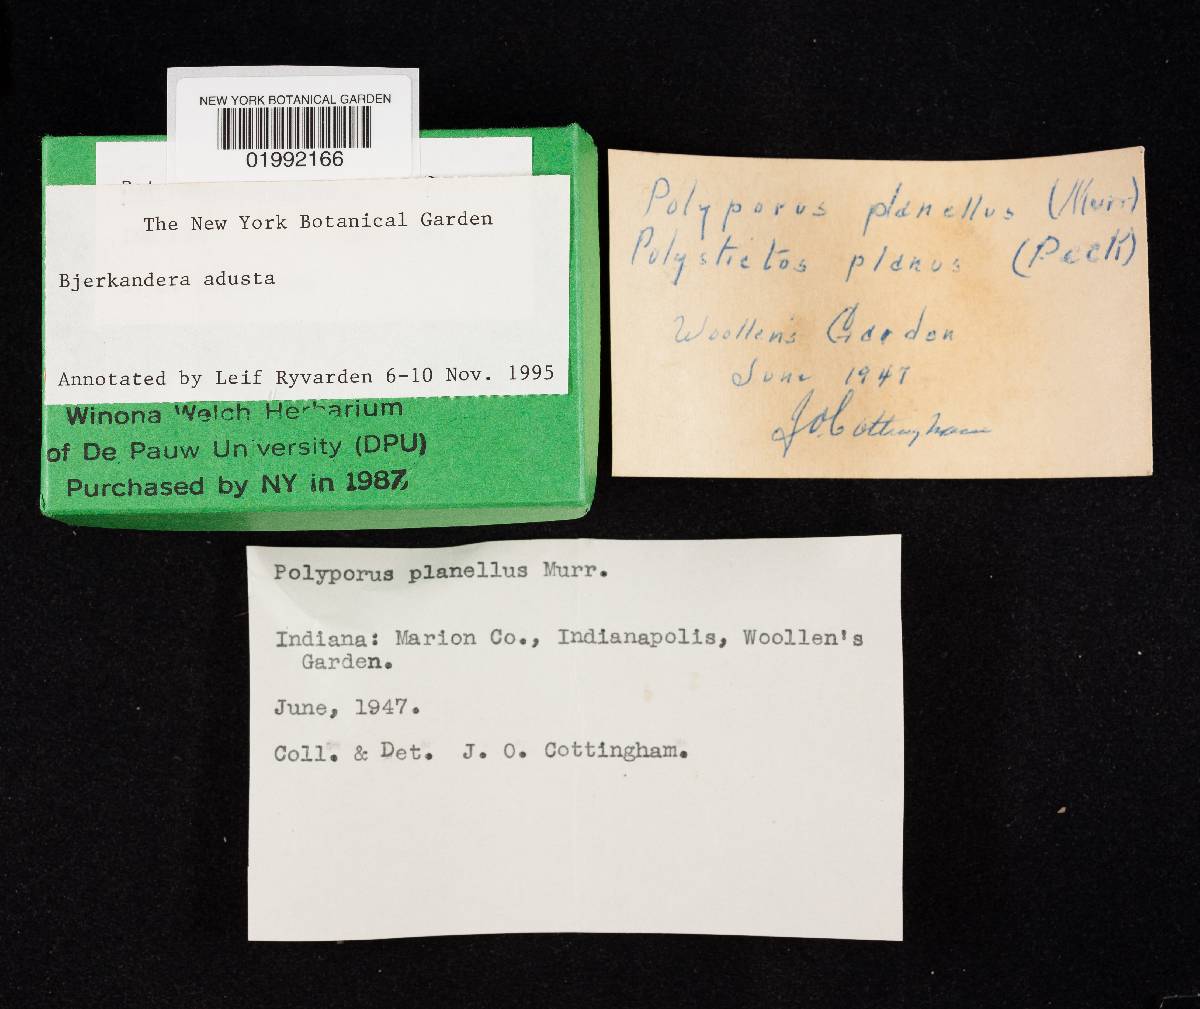 NEW YORK BOTANICAL GARDEN
01992166
The New York Botanical Garden
Bjerkandera adusta
Annotated by Leif Ryvarden 6-10 Nov. 1995
Winona Welch Herbarium
of De Pauw University (DPU)
Purchased by NY in 1987
Polyporus planellus (Murr)
Polystictos planus (Peck)
Woollen's Garden
June 1947
J O Cottingham
Polyporus planellus Murr.
Indiana: Marion Co., Indianapolis, Woollen's
Garden.
June, 1947.
Coll. & Det. J. O. Cottingham.